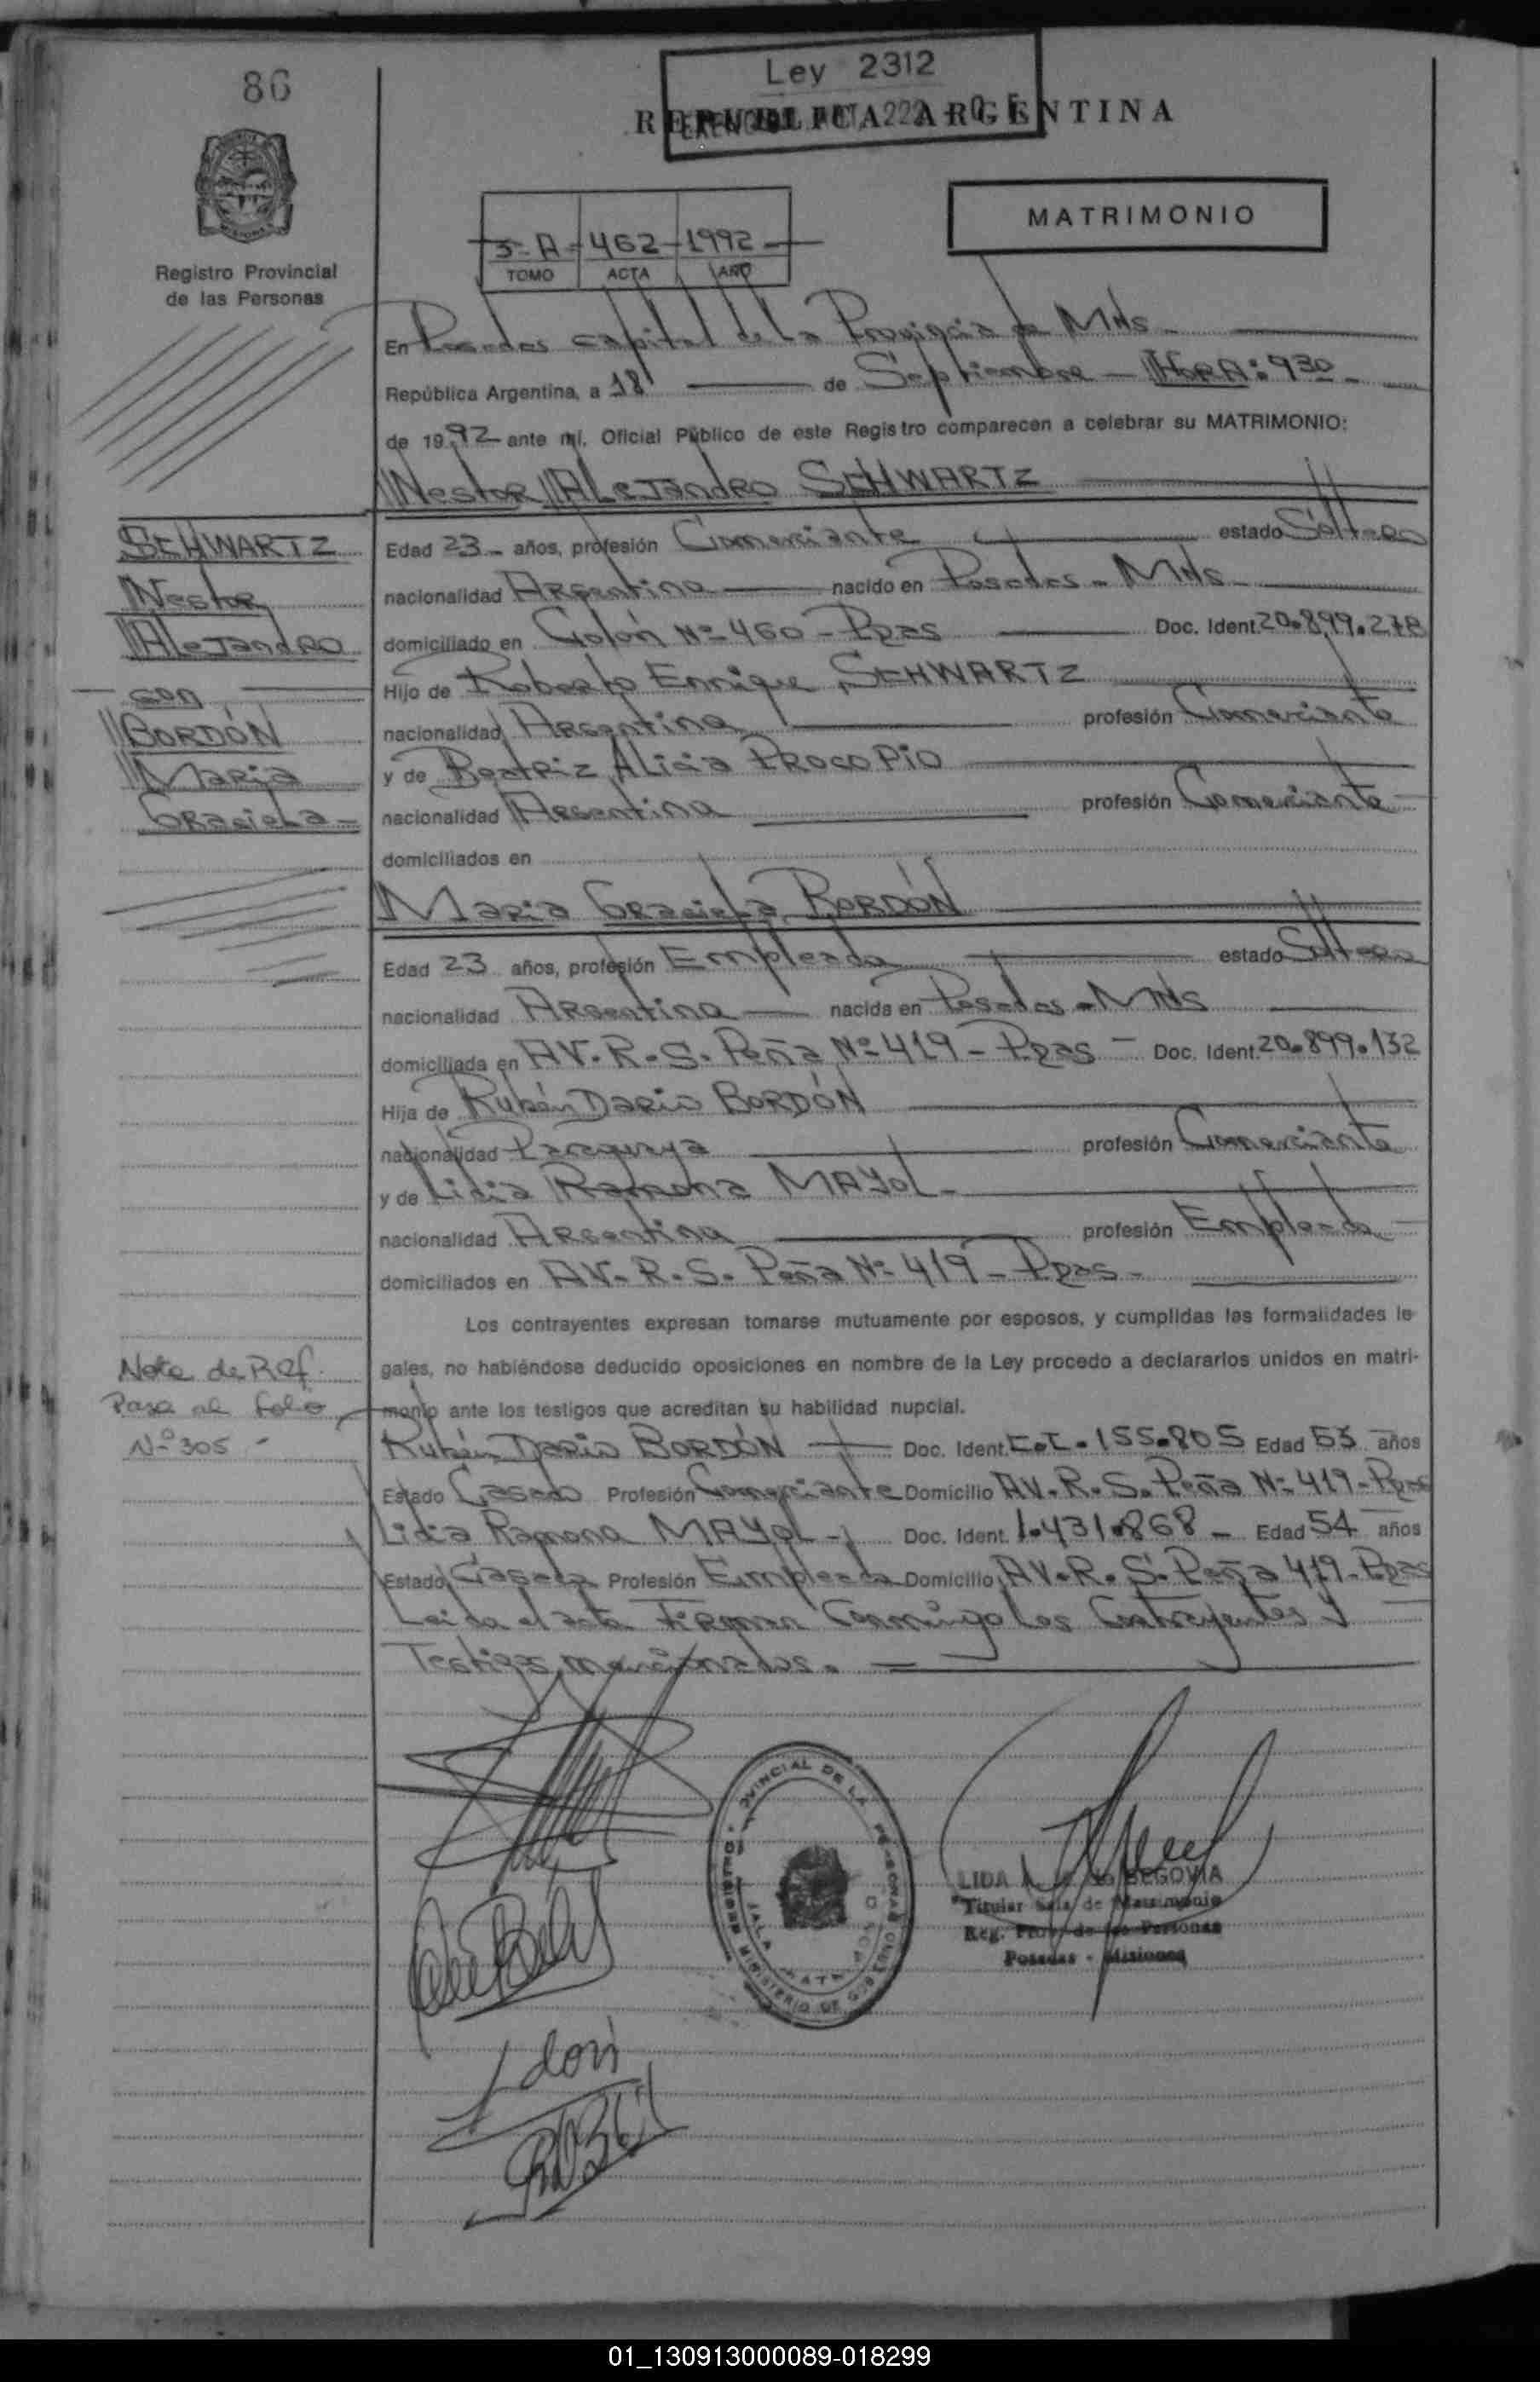 86
Ley 2312
REPUBLICA ARGENTINA
MATRIMONIO
Registro Provincial
de las Personas
3-A-462-1992-
TOMO ACTA AÑO
En Posadas capital de la Provincia de Mns-
República Argentina, a 18 de Septiembre - HORA: 930-
de 1992 ante mí, Oficial Público de este Registro comparecen a celebrar su MATRIMONIO:
Nestor Alejandro SCHWARTZ
SCHWARTZ
Nestor
Alejandro
con
BORDÓN
Maria
Graciela-
Edad 23- años, profesión Comerciante estado Soltero
nacionalidad Argentina nacido en Posadas - Mns
domiciliado en Colón Nº 460 - Ppas Doc. Ident. 20.899.278
Hijo de Roberto Enrique SCHWARTZ
nacionalidad Argentina profesión Comerciante
y de Beatriz Alicia PROCOPIO
nacionalidad Argentina profesión Comerciante
domiciliados en
Maria Graciela BORDÓN
Edad 23 años, profesión Empleada estado Soltera
nacionalidad Argentina nacida en Posadas - Mns
domiciliada en AV. R. S. Peña Nº 419 - Ppas - Doc. Ident. 20.899.132
Hija de Rubén Dario BORDÓN
nacionalidad Paraguaya profesión Comerciante
y de Lidia Ramona MAYOL-
nacionalidad Argentina profesión Empleada
domiciliados en AV. R. S. Peña Nº 419 - Ppas -
Los contrayentes expresan tomarse mutuamente por esposos, y cumplidas las formalidades le
gales, no habiéndose deducido oposiciones en nombre de la Ley procedo a declararlos unidos en matri-
monio ante los testigos que acreditan su habilidad nupcial.
Nota de Ref.
Pasa al folio
Nº 305 -
Rubén Dario BORDÓN Doc. Ident. 155.805 Edad 53 años
Estado Casado Profesión Comerciante Domicilio AV. R. S. Peña Nº 419 - Ppas
Lidia Ramona MAYOL - Doc. Ident. 1.431.868 - Edad 54 años
Estado Casada Profesión Empleada Domicilio AV. R. S. Peña 419 - Ppas
Leida el acta Firman Conmigo los Contrayentes y
Testigos mencionados.
LIDA SEGOVIA
Titular de Matrimonio
Reg. Prov. de las Personas
Posadas - Misiones
01_130913000089-018299